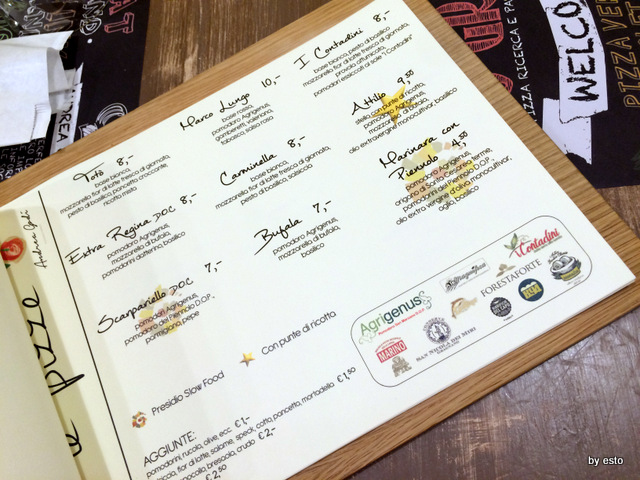 Totò 8,-
base bianca,
mozzarella fior di latte fresca di giornata,
pesto di basilico, pancetta croccante,
ricotta mista
Marco Lungo 10,-
base rossa,
pomodoro Agrigenus,
gamberetti, valeriana,
tabasco, salsa rosa
I Contadini 8,-
base bianca, pesto di basilico
mozzarella fior di latte fresca di giornata,
provola affumicata,
pomodori essiccati al sole "I Contadini"
Extra Regina DOC 8,-
pomodoro Agrigenus,
mozzarella di bufala,
pomodorini datterino, basilico
Carminella 8,-
base bianca,
mozzarella fior di latte fresca di giornata,
pesto di basilico, salsiccia
Attilio 9,50
stella con punte di ricotta,
pomodoro Agrigenus,
mozzarella di bufala,
olio extravergine monocultivar, basilico
Scarpariello DOC 7,-
pomodori Agrigenus,
pomodoro del Piennolo D.O.P.,
parmigiano, pepe
Bufala 7,-
pomodoro Agrigenus,
mozzarella di bufala,
basilico
Marinara con
Piennolo 4,50
pomodoro Agrigenus,
origano di Santa Cesarea terme,
pomodorini del Piennolo D.O.P.,
olio extra vergine d'oliva monocultivar,
aglio, basilico
Presidio Slow Food
Con punte di ricotta
AGGIUNTE:
pomodorini, rucola, olive, ecc. € 1,-
fior di latte, salame, speck, cotto, pancetta, mortadella € 1,50
bresaola, crudo € 2,-
€ 2,50
Agrigenus
i Contadini
FORESTAFORTE
MARINO
SAN NICOLA DEI MIRI
pizze
WELCO
PIZZA RICERCA E PA
PIZZA VE
by esto